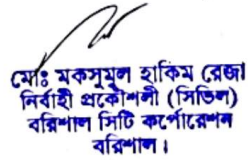 মোঃ মকসুমুল হাকিম রেজা
নির্বাহী প্রকৌশলী (সিভিল)
বরিশাল সিটি কর্পোরেশন
বরিশাল।